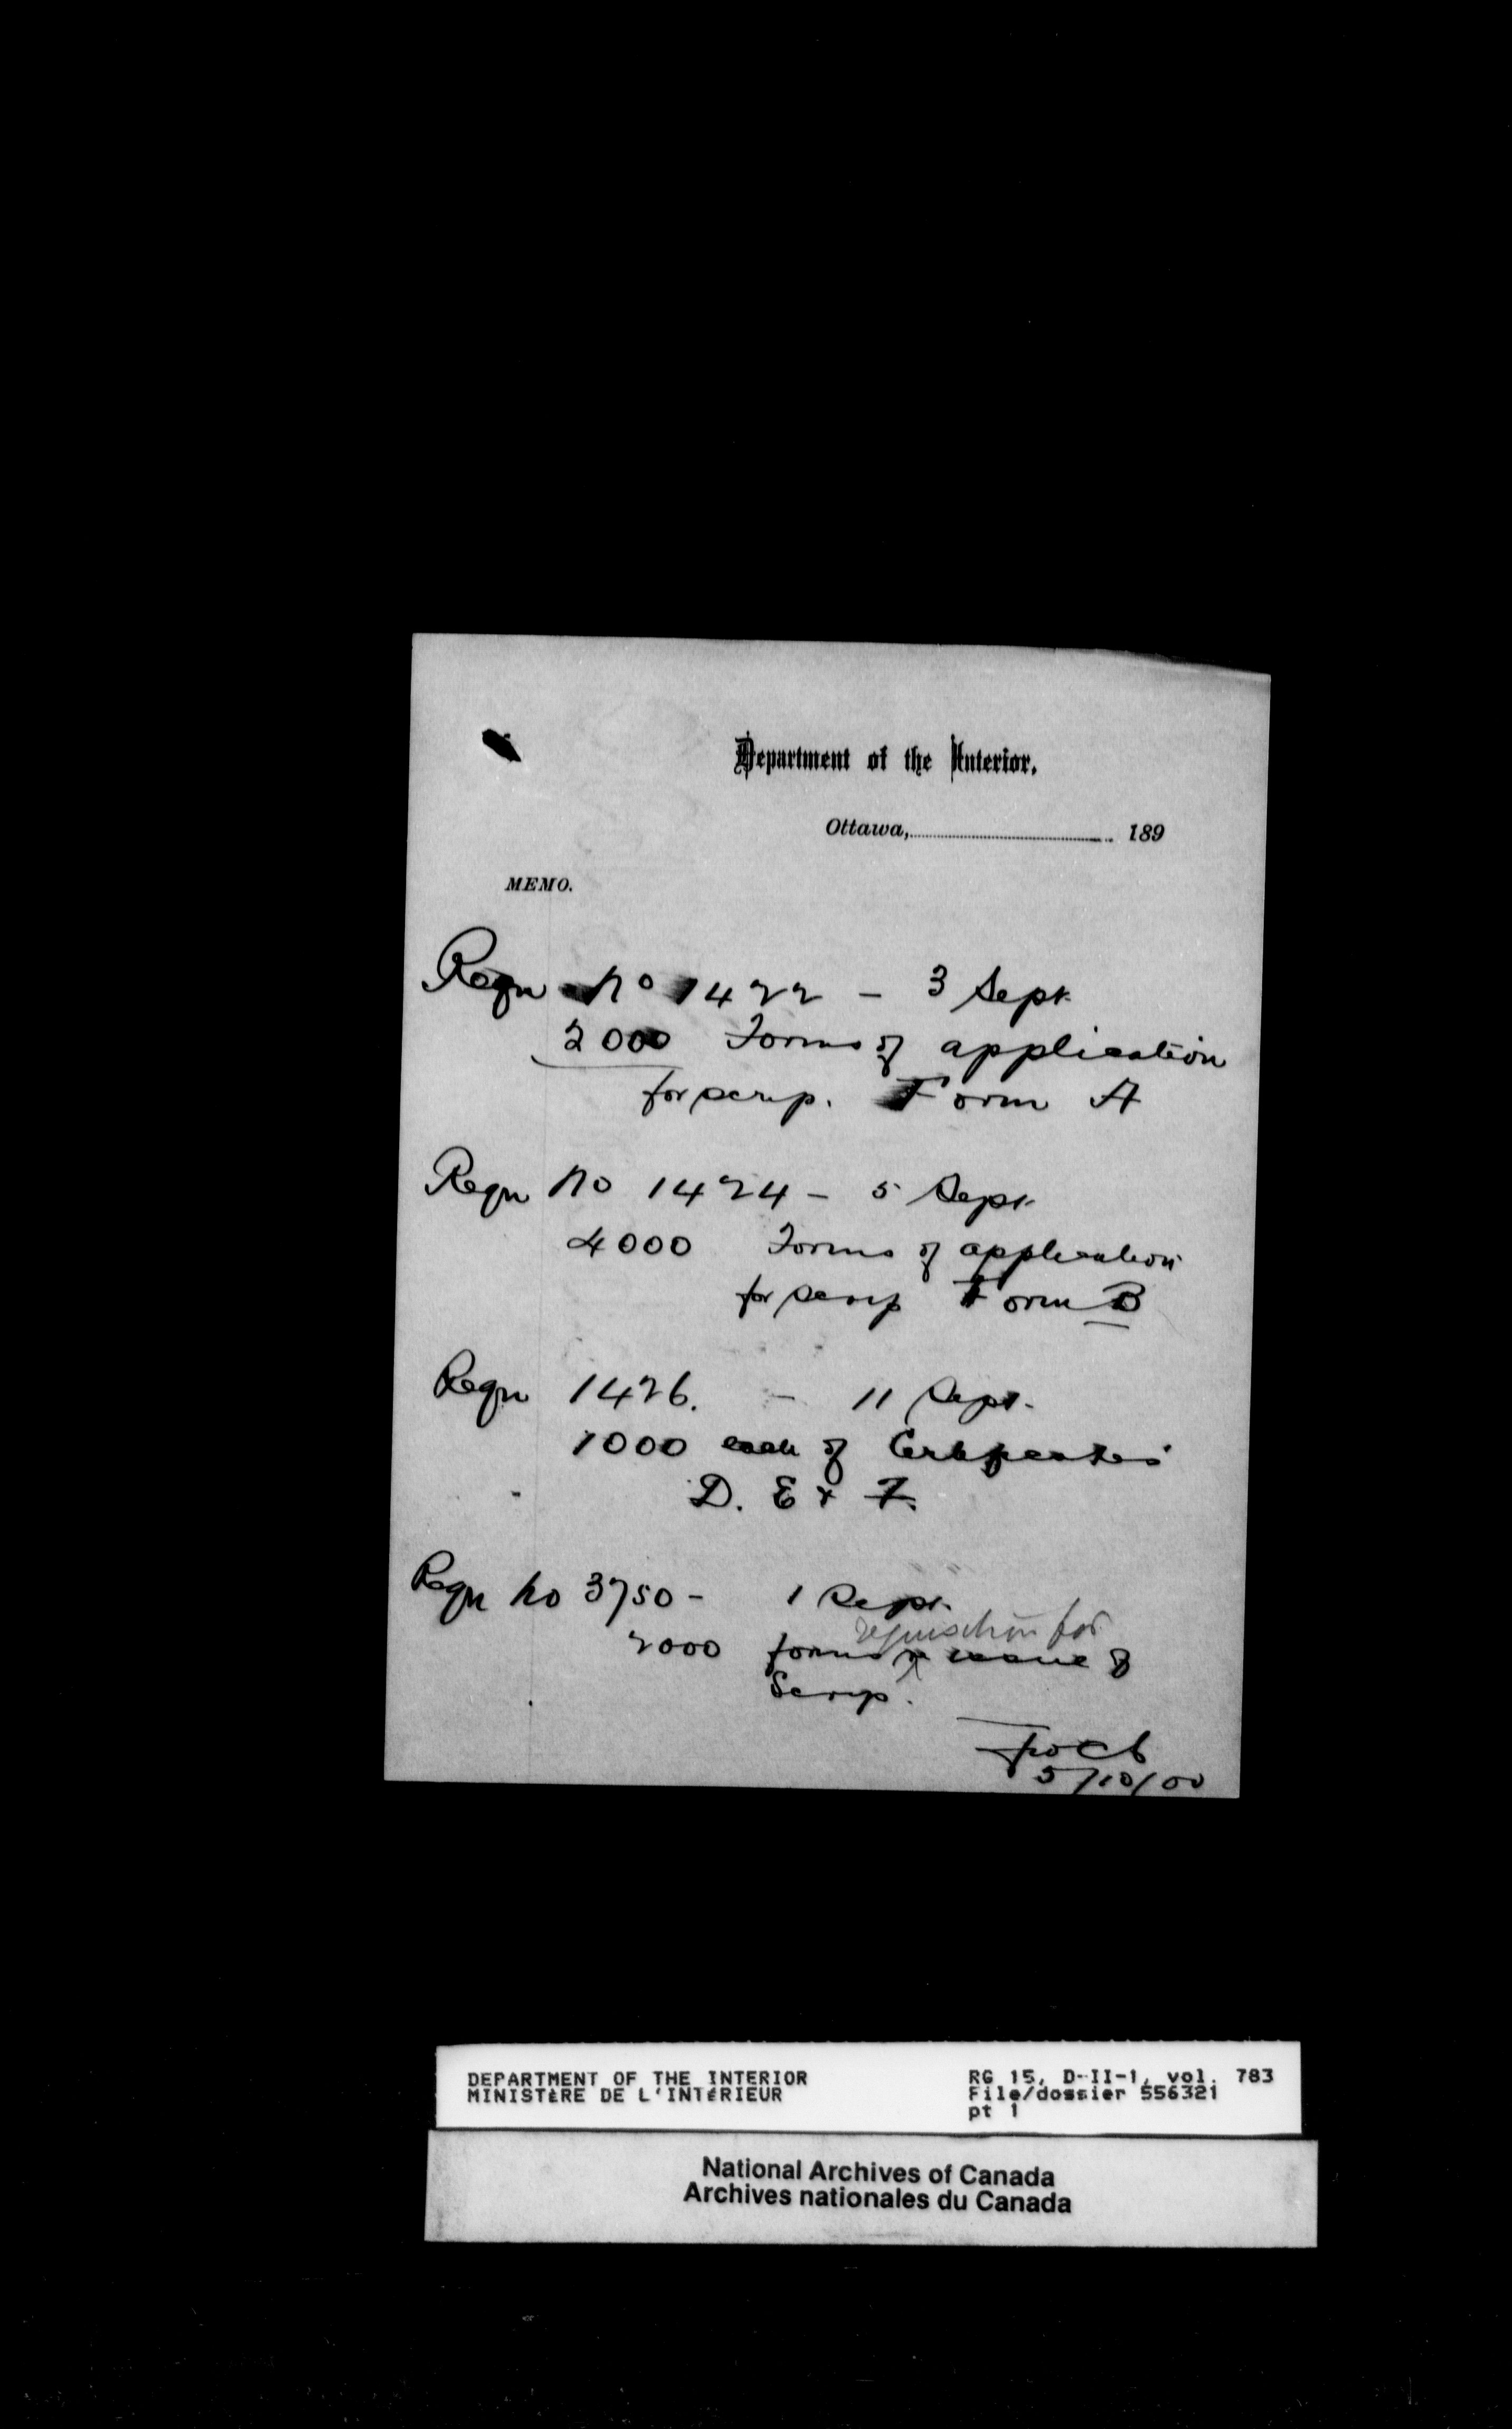 Department of the Interior.
Ottawa,.......................................... 189
MEMO.
Reqn No 1422 - 3 Sept.
2000 Forms of application
for scrip. Form A
Reqn No 1424 - 5 Sept.
4000 Forms of application
for scrip Form B
Reqn 1426. - 11 Sept.
1000 each of Certificates
D. E & F.
Reqn No 3750 - 1 Sept.
requisition for
2000 forms re issue of
Scrip.
5/10/00
DEPARTMENT OF THE INTERIOR
MINISTÈRE DE L'INTÉRIEUR
RG 15, D-II-1, vol. 783
File/dossier 556321
pt 1
National Archives of Canada
Archives nationales du Canada